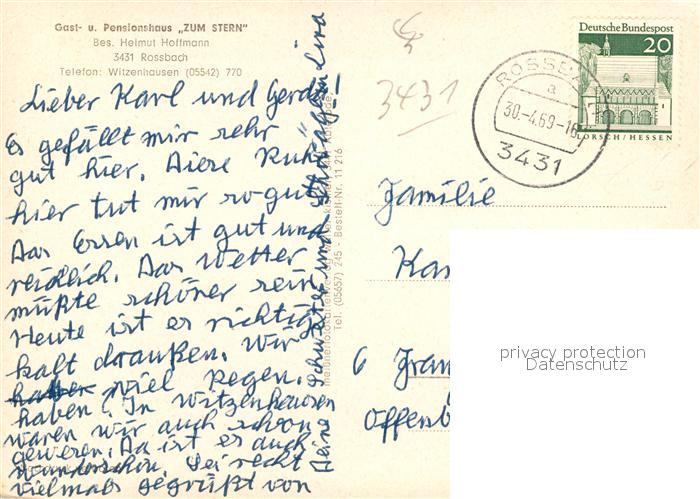 Gast- u. Pensionshaus „ZUM STERN"
Bes. Helmut Hoffmann
3431 Rossbach
Telefon: Witzenhausen (05542) 770
Lieber Karl und Gerda!
Es gefällt mir sehr
gut hier. Diese Ruhe
hier tut mir so gut
Das Essen ist gut und
reichlich. Das Wetter
müßte schöner sein
Heute ist es richtig
kalt draußen. Wir
viel Regen.
haben. In Witzenhausen
waren wir auch schon
gewesen. Da ist es auch
wunderschön. Sei recht
vielmals gegrüßt von
Deine Schwester und Schwägerin
Tel. (05657) 245 - Bestell-Nr. 11 216
3431
Deutsche Bundespost
20
LORSCH/HESSEN
ROSSB
a
30.-4.69-16
3431
Familie
Kar
6 Fran
Offenb
privacy protection
Datenschutz